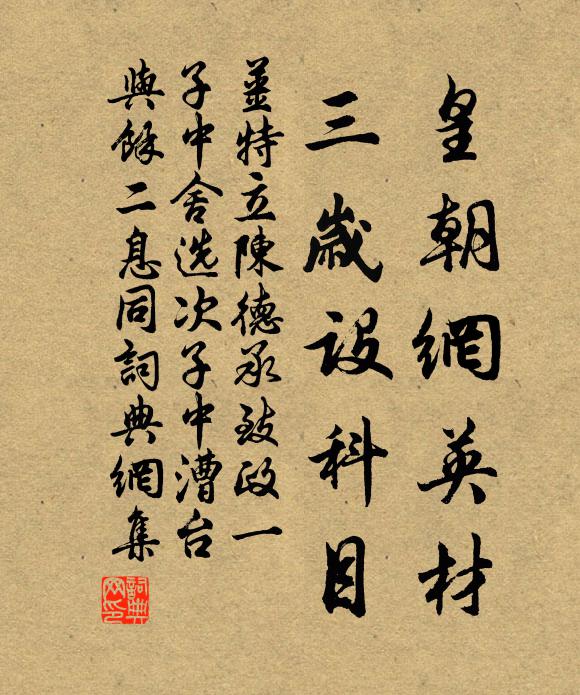 皇朝網英材
三歲設科目
薑特立陳德承致政一
子中舍选次子中漕台
與餘二息同詞典網集
詞典
网印